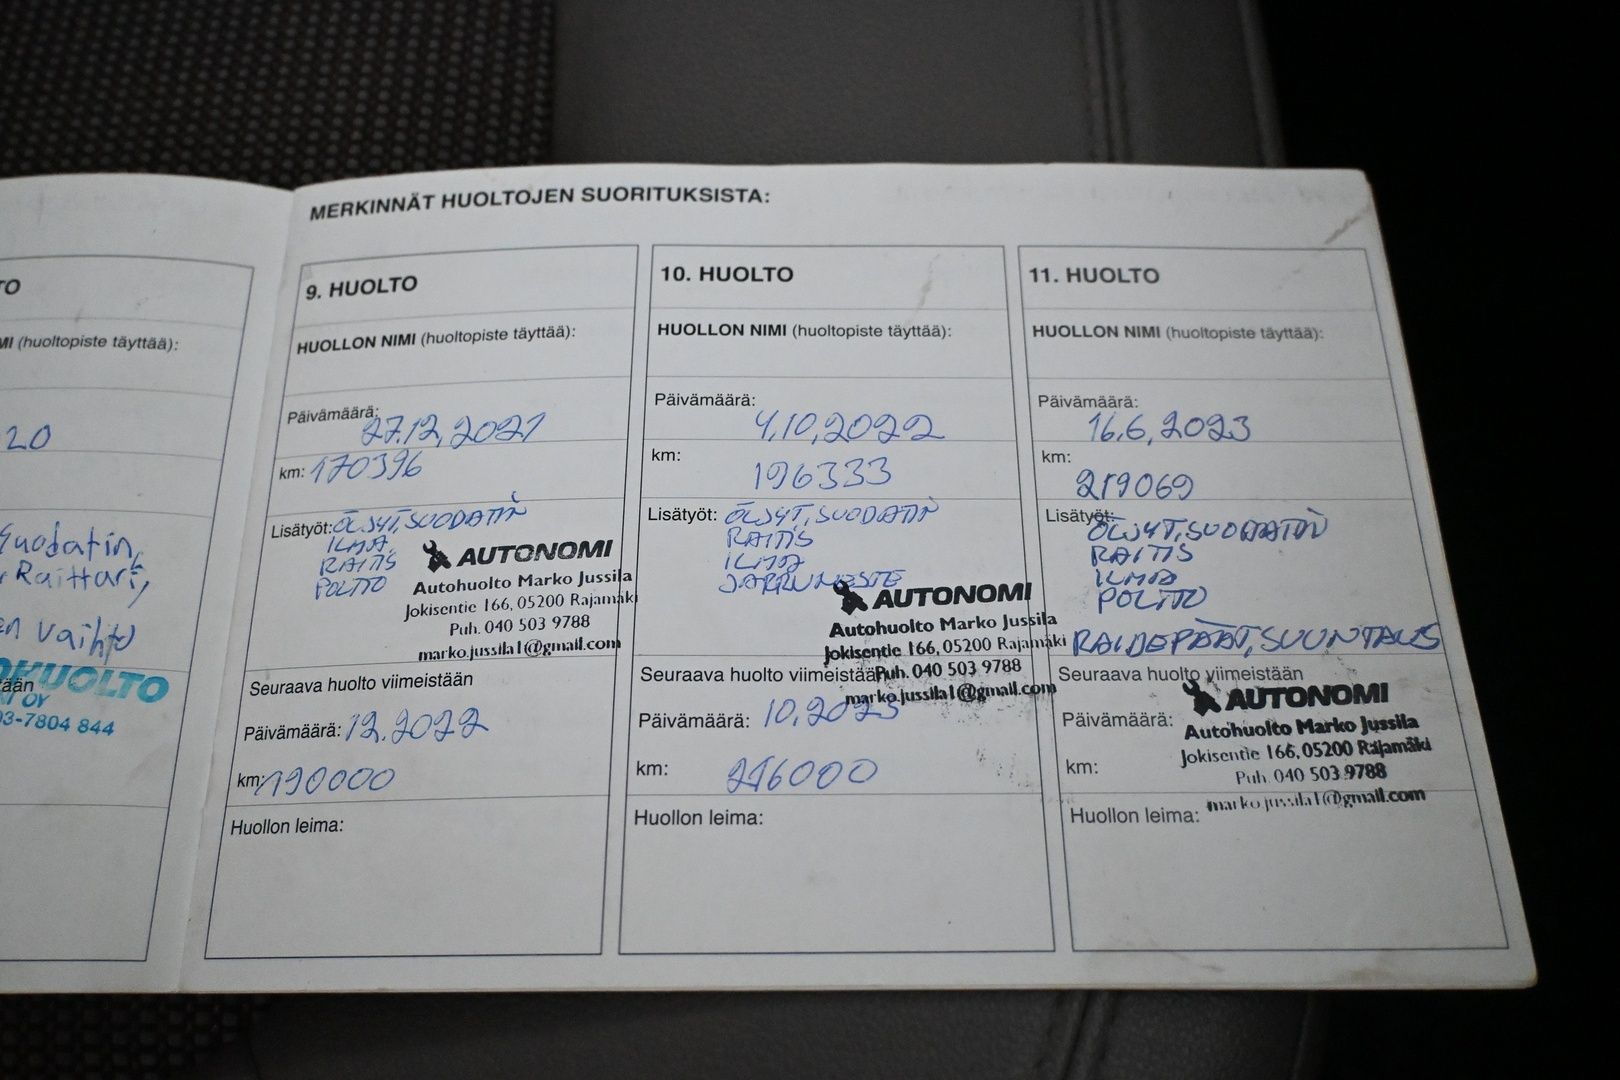 MERKINNÄT HUOLTOJEN SUORITUKSISTA:
TO
MI (huoltopiste täyttää):
20
Suodatin,
Raittari,
en vaihto
OKUOLTO
tään
OY
03-7804 844
9. HUOLTO
HUOLLON NIMI (huoltopiste täyttää):
Päivämäärä:
27.12,2021
km: 170396
Lisätyöt: ÖLJYT, SUODATIN
ILMA
RAITIS
POLTTO
AUTONOMI
Autohuolto Marko Jussila
Jokisentie 166, 05200 Rajamäki
Puh. 040 503 9788
marko.jussila1@gmail.com
Seuraava huolto viimeistään
Päivämäärä: 12.2022
km: 190000
Huollon leima:
10. HUOLTO
HUOLLON NIMI (huoltopiste täyttää):
Päivämäärä:
4.10,2022
km:
196333
Lisätyöt: ÖLJYT, SUODATIN
RAITIS
ILMA
JARRUNESTE
AUTONOMI
Autohuolto Marko Jussila
Jokisentie 166, 05200 Rajamäki
Seuraava huolto viimeistään
Puh. 040 503 9788
marko.jussila1@gmail.com
Päivämäärä: 10,2023
km: 216000
Huollon leima:
11. HUOLTO
HUOLLON NIMI (huoltopiste täyttää):
Päivämäärä:
16.6,2023
km:
219069
Lisätyöt:
ÖLJYT, SUODATIN
RAITIS
ILMA
POLTTO
RAIDEPÄÄT, SUUNTAUS
Seuraava huolto viimeistään
AUTONOMI
Päivämäärä:
Autohuolto Marko Jussila
Jokisentie 166, 05200 Rajamäki
km:
Puh. 040 503 9788
marko.jussila1@gmail.com
Huollon leima: